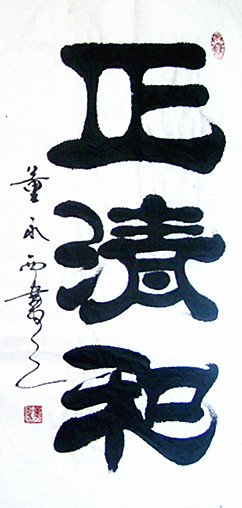 正清和
董永西書